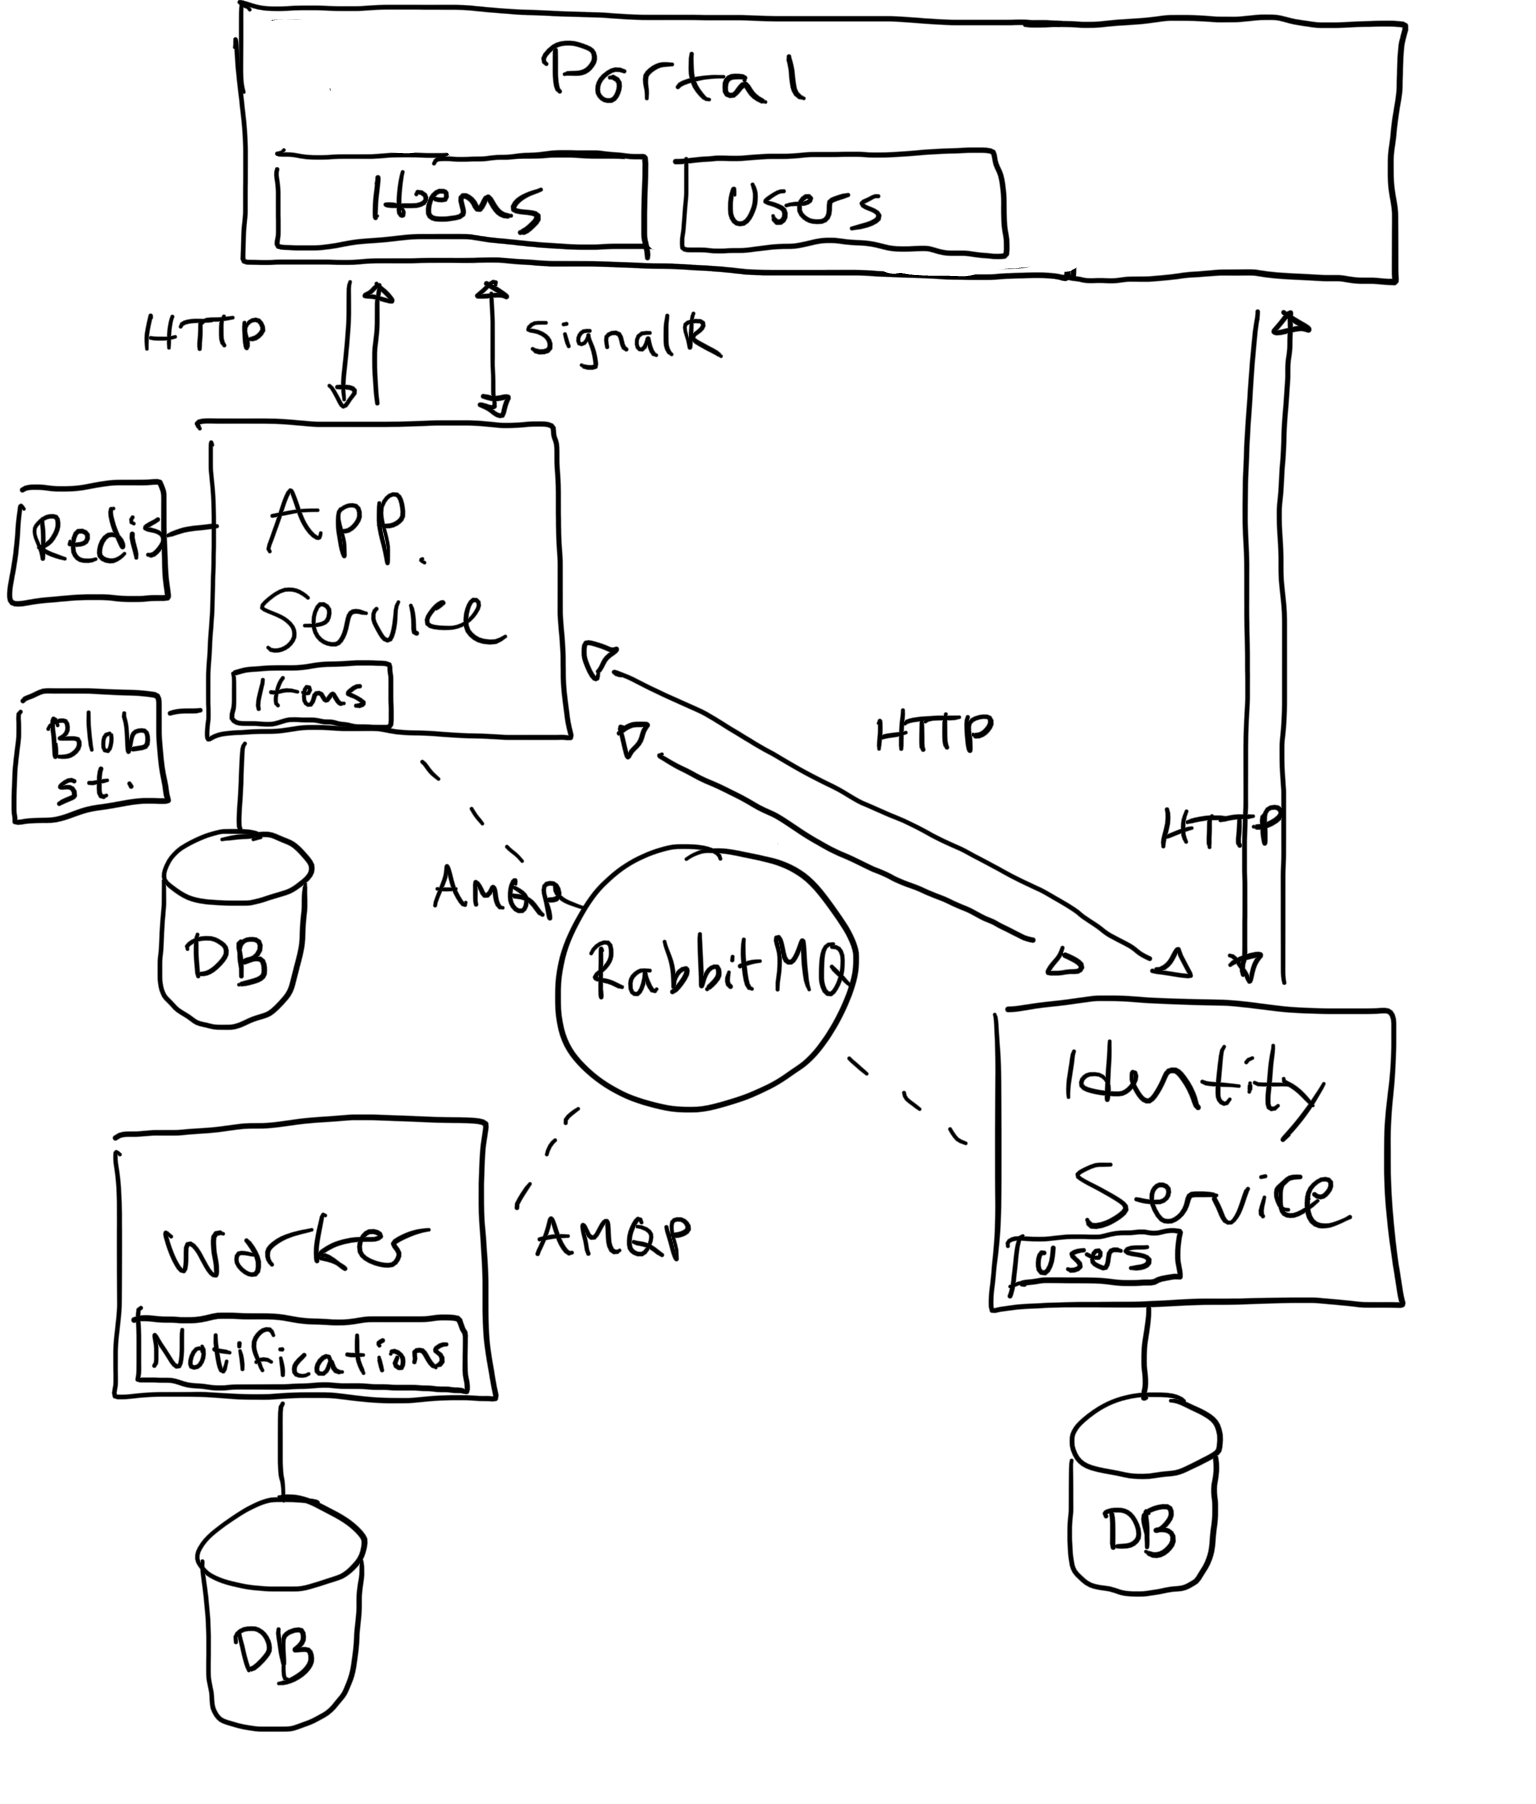 Portal
Items
Users
HTTP
SignalR
App.
Service
Items
Redis
Blob
st.
DB
HTTP
HTTP
AMQP
RabbitMQ
Identity
Service
Users
DB
Worker
Notifications
AMQP
DB